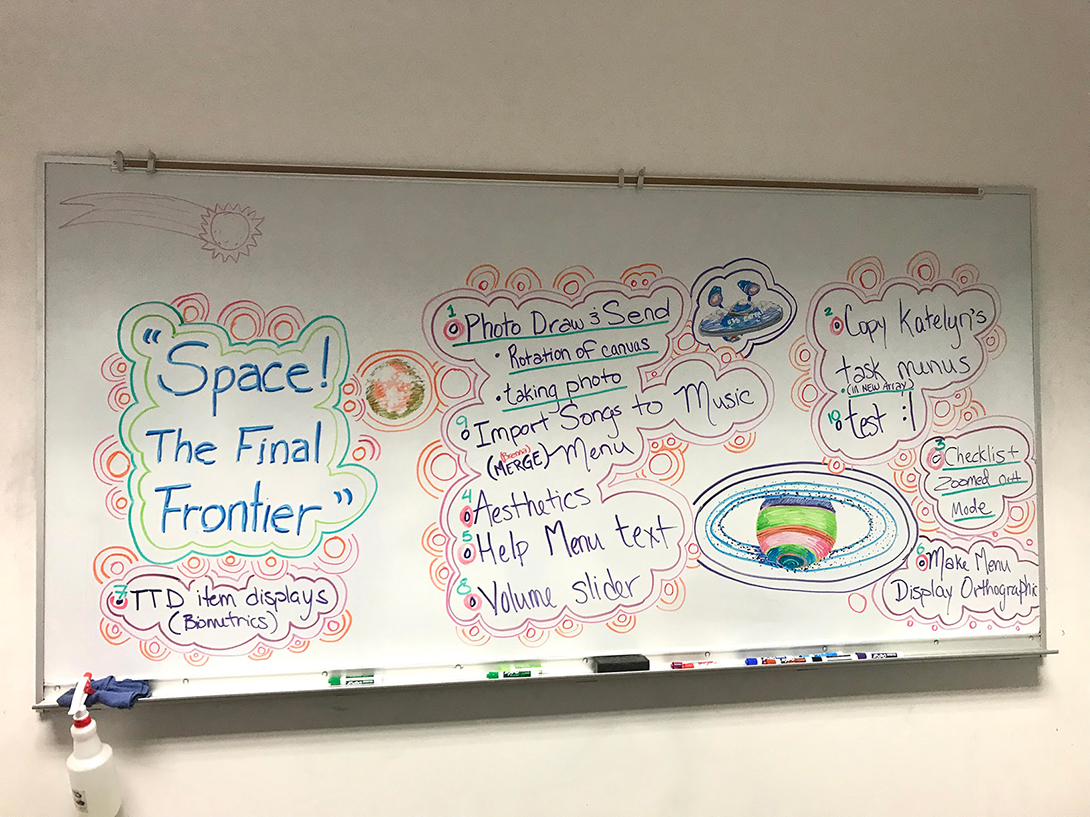 "Space!
The Final
Frontier"
7 TTD item displays
(Biometrics)
1 Photo Draw & Send
• Rotation of canvas
• taking photo
9 Import Songs to Music
(MERGE) Menu
4 Aesthetics
5 Help Menu text
8 Volume slider
2 Copy Katelyn's
task menus
• (in NEW Array)
10 test :|
3 Checklist
Zoomed out
Mode
6 Make Menu
Display Orthographic